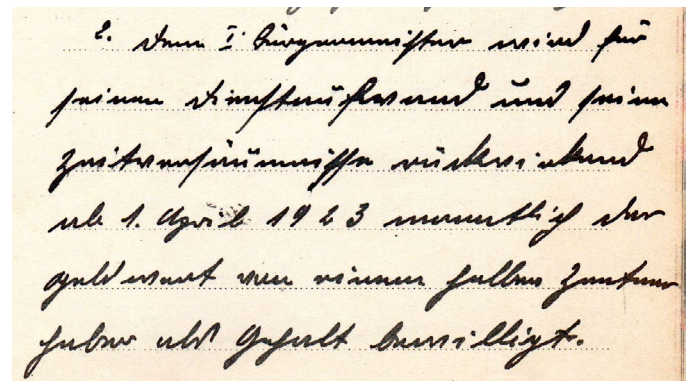 2. Dem I. Bürgermeister wird für
seinen Dienstaufwand und seine
Zeitversäumnisse rückwirkend
ab 1. April 1923 monatlich der
Geldwert von einem halben Zentner
Haber als Gehalt bewilligt.